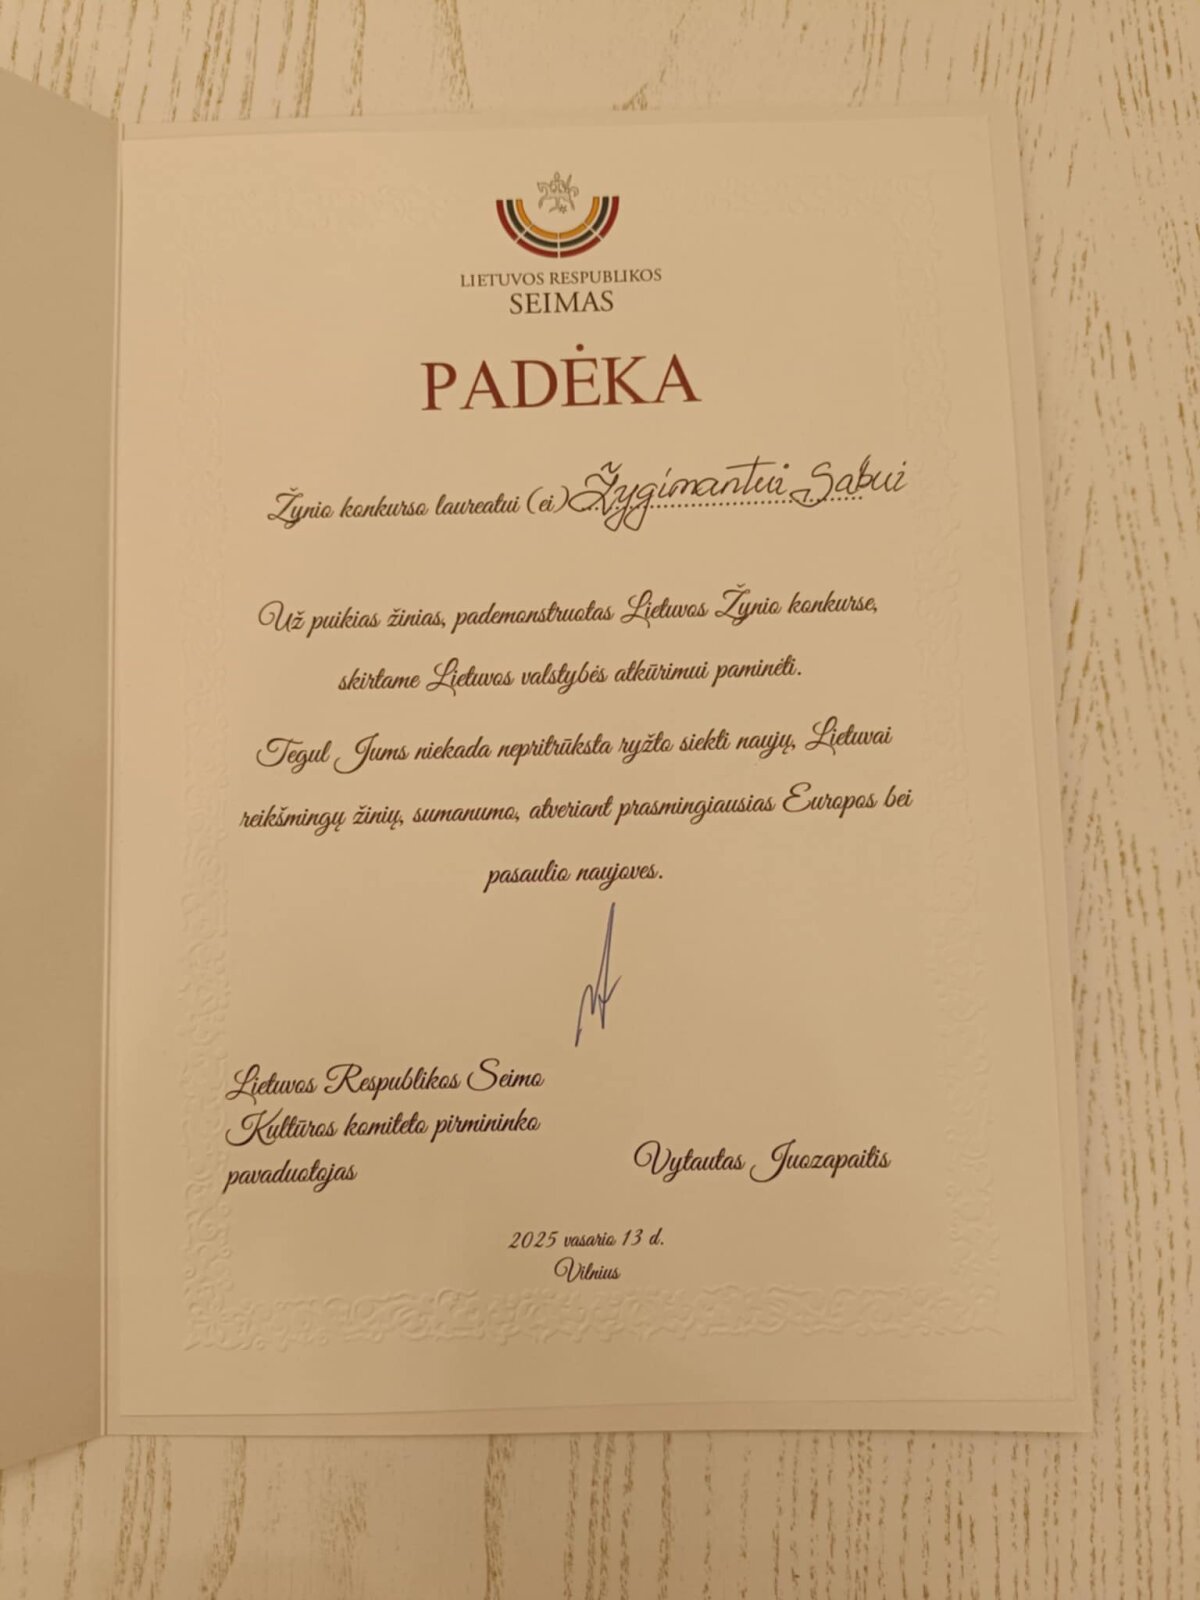 LIETUVOS RESPUBLIKOS
SEIMAS
PADĖKA
Žynio konkurso laureatui (ei) Žygimantui Sabui
Už puikias žinias, pademonstruotas Lietuvos Žynio konkurse,
skirtame Lietuvos valstybės atkūrimui paminėti.
Tegul Jums niekada nepritrūksta ryžto siekti naujų, Lietuvai
reikšmingų žinių, sumanumo, atveriant prasmingiausias Europos bei
pasaulio naujoves.
Lietuvos Respublikos Seimo
Kultūros komiteto pirmininko
pavaduotojas
Vytautas Juozapaitis
2025 vasario 13 d.
Vilnius